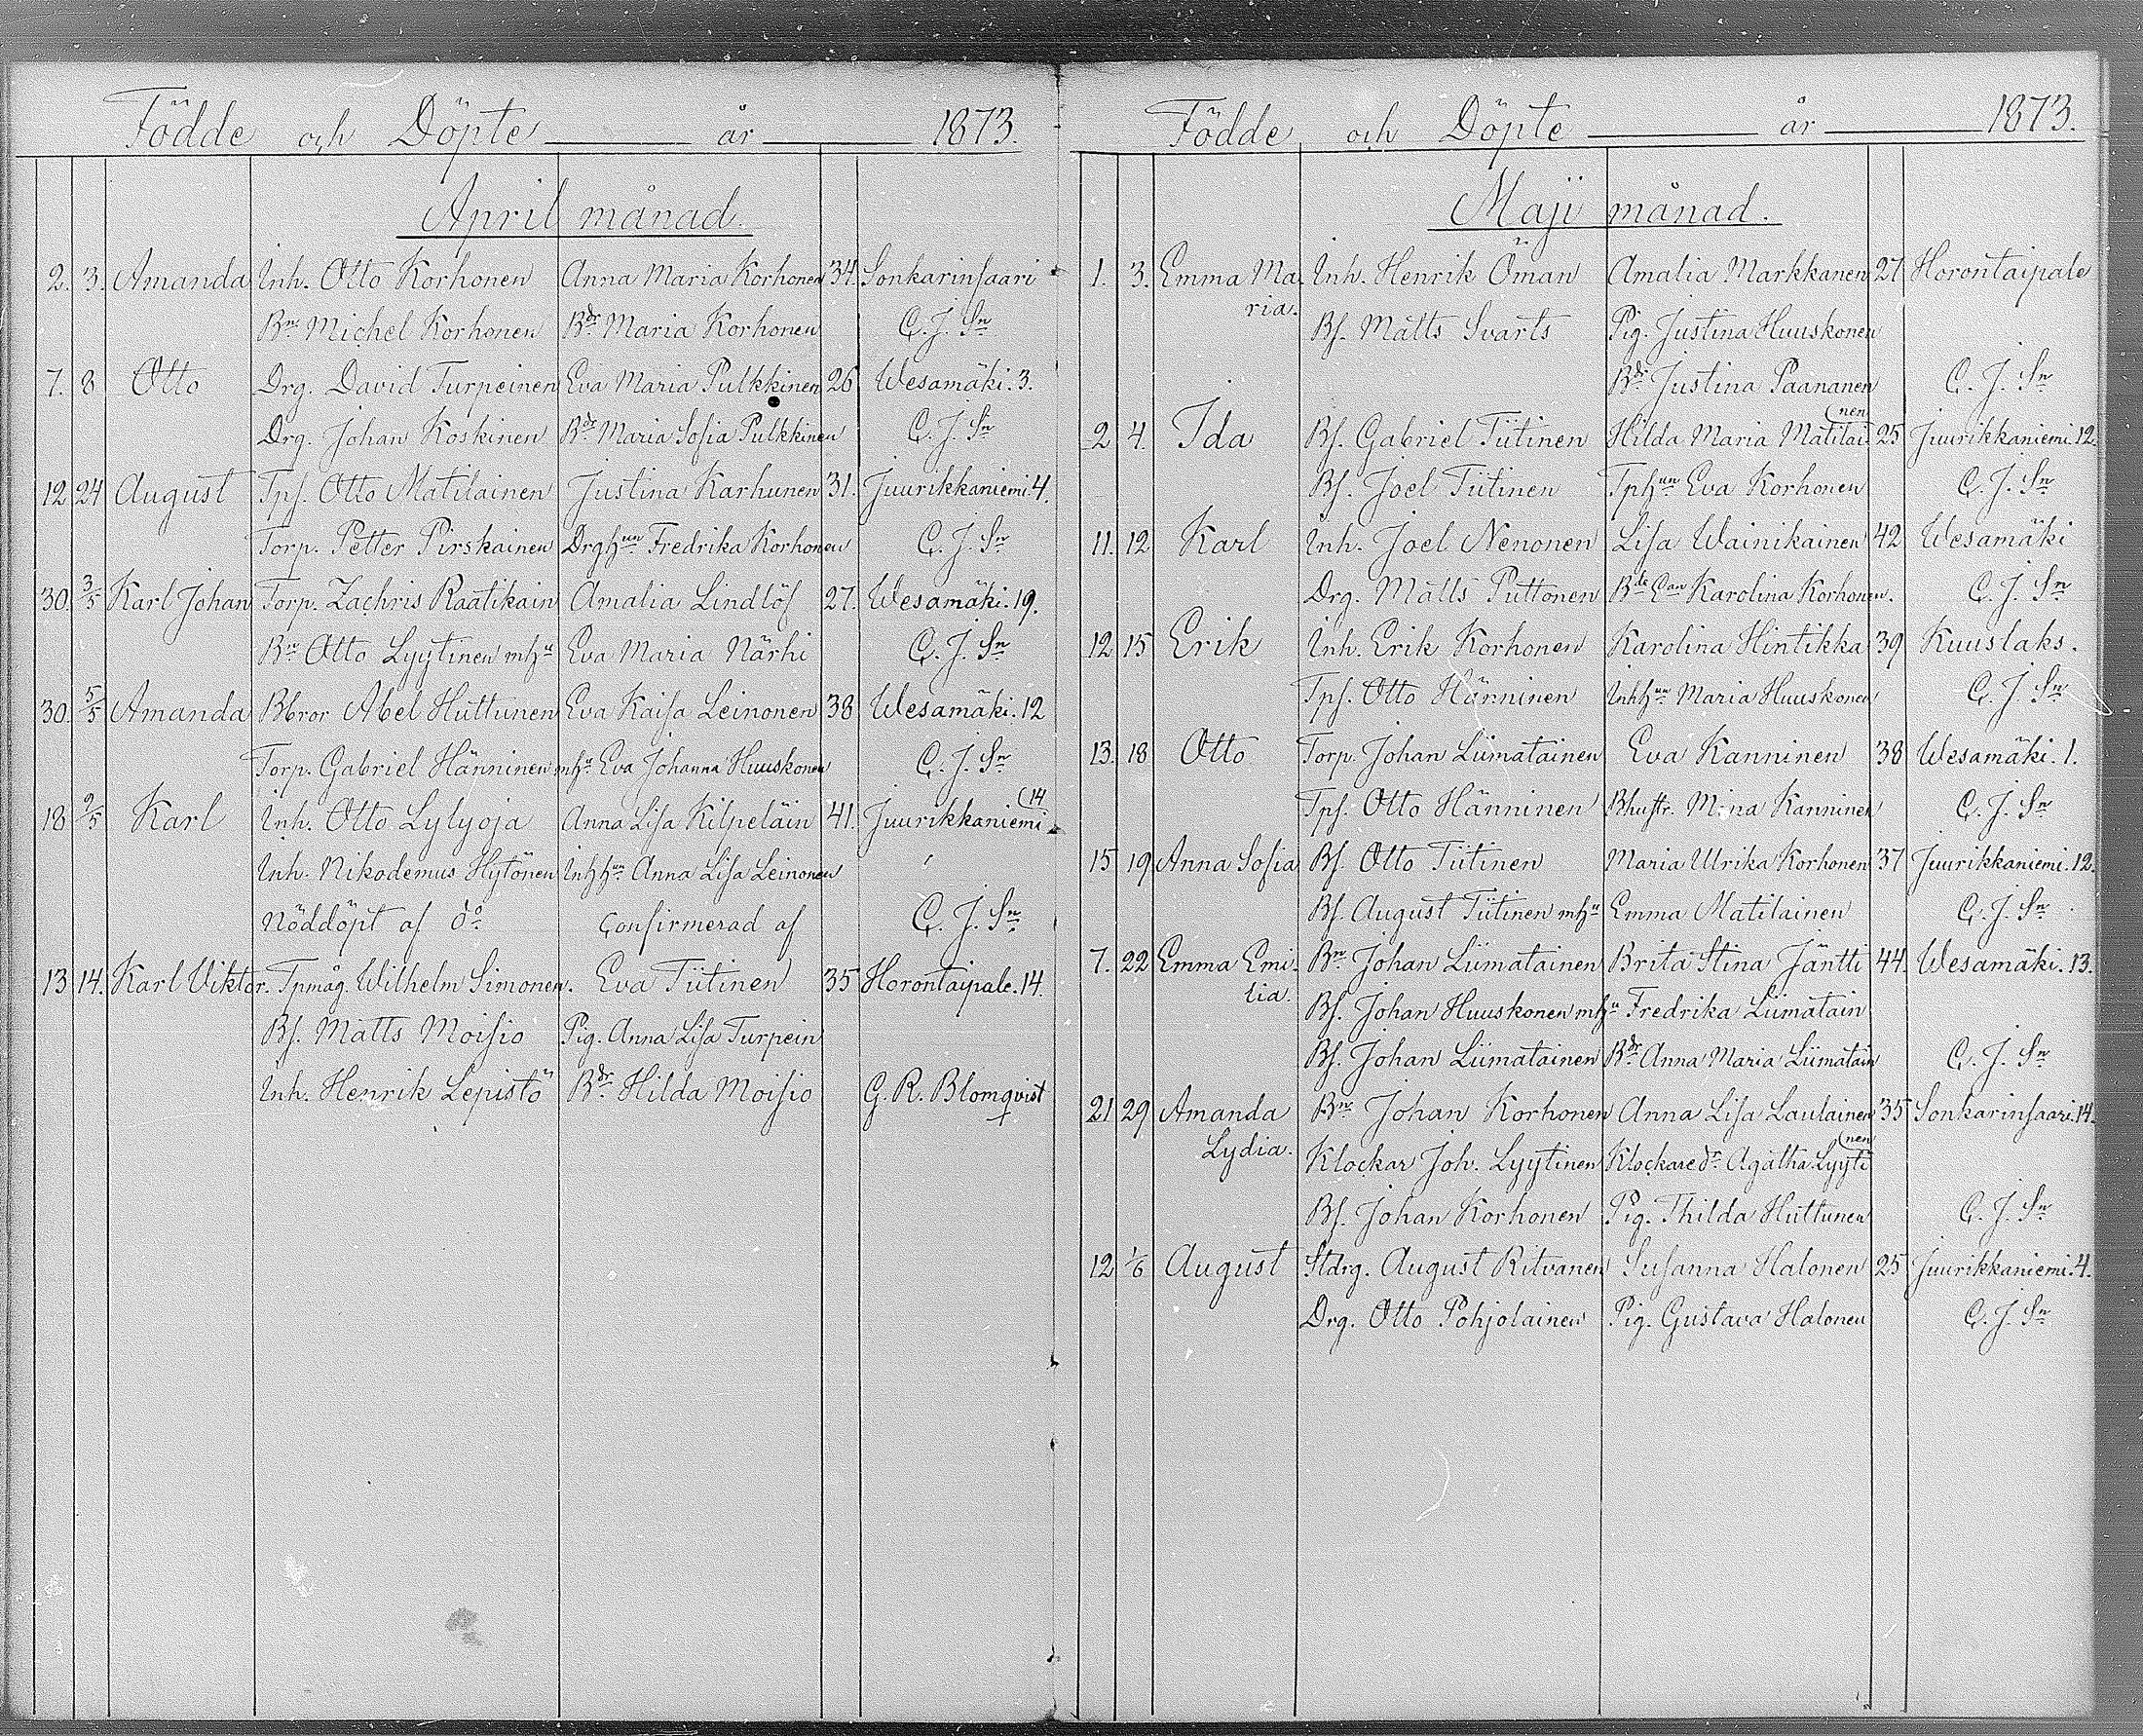 Födde och Döpte år 1873.
April månad.
2. 3. Amanda Inh. Otto Korhonen Anna Maria Korhonen 34. Sonkarinsaari
Bn. Michel Korhonen Bdr. Maria Korhonen C. J. Sn
7. 8 Otto Drg. David Turpeinen Eva Maria Pulkkinen 26 Wesamäki. 3.
Drg. Johan Koskinen Bdr Maria Sofia Pulkkinen C. J. Sn
12 24 August Tps. Otto Matilainen Justina Karhunen 31. Juurikkaniemi 4.
Torp. Petter Pirskainen Drghun Fredrika Korhonen C. J. Sn
30. 3/5 Karl Johan Torp. Zachris Raatikain Amalia Lindlöf 27. Wesamäki. 19.
Bn Otto Lyytinen mhu Eva Maria Närhi C. J. Sn
30. 5/5 Amanda Bbror Abel Huttunen Eva Kaisa Leinonen 38 Wesamäki. 12
Torp. Gabriel Hänninen mhu Eva Johanna Huuskonen C. J. Sn
18 9/5 Karl Inh. Otto Lylyoja Anna Lisa Kilpeläin 41. Juurikkaniemi (14
Inh. Nikodemus Hytönen Inhhun Anna Lisa Leinonen
Nöddöpt af do Confirmerad af C. J. Sn
13 14. Karl Viktor. Tpmåg. Wilhelm Simonen. Eva Tiitinen 35 Horontaipale. 14.
Bs. Matts Moisio Pig. Anna Lisa Turpein
Inh. Henrik Lepistö Bdr Hilda Moisio G. R. Blomqvist
Födde och Döpte år 1873.
Maji månad.
1. 3. Emma Ma- Inh. Henrik Öman Amalia Markkanen 27 Horontaipale
ria. Bs. Matts Svarts Pig. Justina Huuskonen
Bdr Justina Paananen C. J. Sn
2 4. Ida Bs. Gabriel Tiitinen Hilda Maria Matilai (nen 25 Juurikkaniemi. 12.
Bs. Joel Tiitinen Tphun Eva Korhonen C. J. Sn
11. 12 Karl Inh. Joel Nenonen Lisa Wainikainen 42 Wesamäki
Drg. Matts Puttonen Karolina Korhonen. C. J. Sn
12 15 Erik Inh. Erik Korhonen Karolina Hintikka 39 Kuuslaks.
Tps. Otto Hänninen Inhhun Maria Huuskonen C. J. Sn
13. 18 Otto Torp. Johan Liimatainen Eva Kanninen 38 Wesamäki. 1.
Tps. Otto Hänninen Bhustr. Mina Kanninen C. J. Sn
15 19 Anna Sofia Bs. Otto Tiitinen Maria Ulrika Korhonen 37 Juurikkaniemi. 12.
Bs. August Tiitinen mhu Emma Matilainen C. J. Sn
7. 22 Emma Emi- Bn Johan Liimatainen Brita Stina Jäntti 44. Wesamäki. 13.
lia. Bs. Johan Huuskonen mhu Fredrika Liimatain
Bs. Johan Liimatainen Bdr Anna Maria Liimatain C. J. Sn
21 29 Amanda Bn Johan Korhonen Anna Lisa Laulainen 35 Sonkarinsaari. 14.
Lydia. Klockar Joh. Lyytinen Klockaredr Agatha Lyyti (nen
Bs. Johan Korhonen Pig. Thilda Huttunen C. J. Sn
12 1/6 August Stdrg. August Ritvanen Susanna Halonen 25 Juurikkaniemi. 4.
Drg. Otto Pohjolainen Pig. Gustava Halonen C. J. Sn